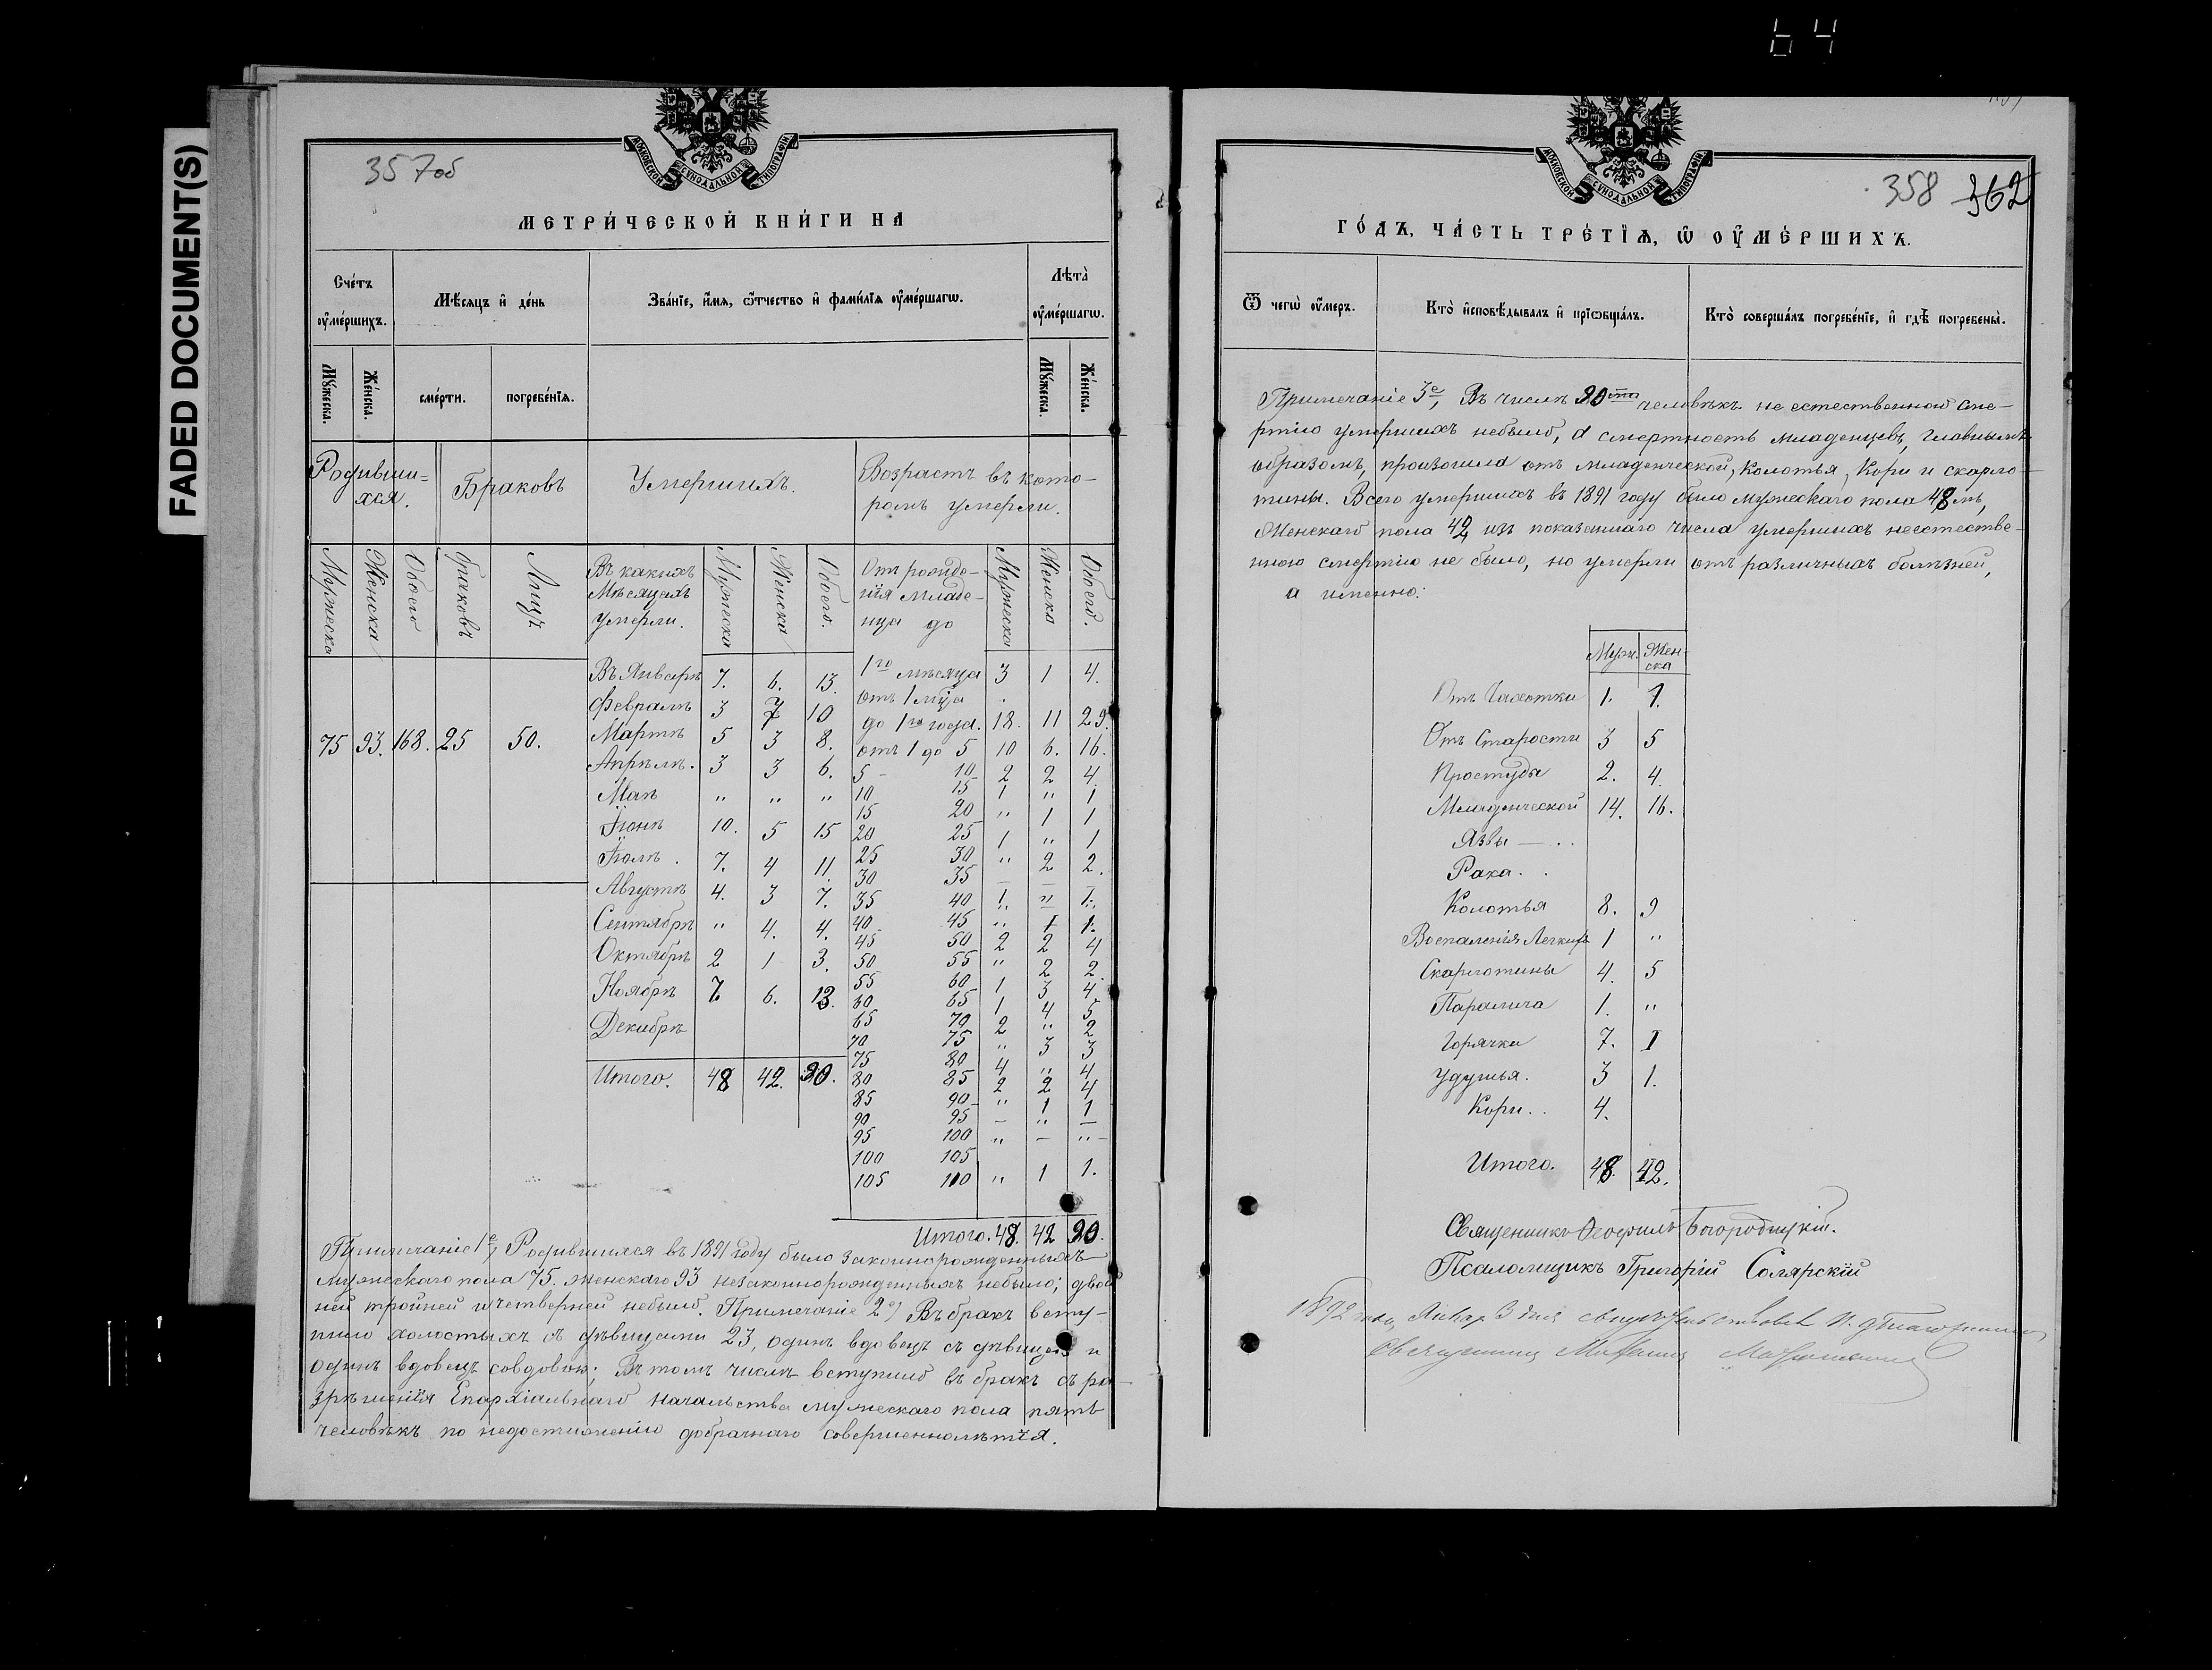 64
FADED DOCUMENT(S)
357об
МОСКОВСКОЙ СѴНОДАЛЬНОЙ ТИПОГРАФІИ
МЕТРИ́ЧЕСКОЙ КНИ́ГИ НА
Сче́тъ оу҆ме́ршихъ.
Мѣ́сяцъ и҆ де́нь
Зва́нїе, и҆́мя, ѻ҆́тчество и҆ фами́лїя оу҆ме́ршагѡ.
Лѣта̀ оу҆ме́ршагѡ.
Мꙋ́жеска. Же́нска. сме́рти. погребе́нїя. Мꙋ́жеска. Же́нска.
Родивши=хся. Браковъ Умершихъ. Возрастъ въ кото-
ромъ умерли.
Мужеска Женска Обоего Браковъ Лицъ
Въ какихъ Мѣсяцахъ Умерли. Мужеска Женска Обоего.
Отъ рожде-
нія младе-
нца до Мужеска Женска Обоего.
75 93. 168. 25 50.
Въ Январѣ 7. 6. 13.
Февралѣ 3 7 10
Мартѣ 5 3 8.
Апрѣлѣ. 3 3 6.
Маѣ " " "
Іюнѣ 10. 5 15
Іюлѣ. 7. 4 11.
Августѣ 4. 3 7.
Сентябрѣ " 4. 4.
Октябрѣ 2 1 3.
Ноябрѣ 7. 6. 13.
Декабрѣ
Итого. 48 42. 90.
1го мѣсяца 3 1 4.
отъ 1 мца
до 1го года. 18. 11 29.
отъ 1 до 5 10 6. 16.
5 - 10 2 2 4
10 15 1 " 1
15 20 " 1 1
20 25 1 " 1
25 30 " 2 2.
30 35 — — —
35 40 1. " 1.
40 45 " 1 1.
45 50 2 2 4
50 55 " 2 2.
55 60 1 3 4
60 65 1 4 5
65 70 2 " 2
70 75 " 3 3
75 80 4 " 4
80 85 2 2 4
85 90 " 1 1
90 95 — " —
95 100 " — "
100 105
105 110 " 1 1.
Итого. 48. 42 90.
Примечаніе 1е, Родившихся въ 1891 году было законнорожденныхъ
мужескаго пола 75. женскаго 93 незаконнорожденныхъ небыло; двой
ней тройней и четверней небыло. Примечаніе 2е) Въ бракъ всту-
пило холостыхъ съ дѣвицами 23, одинъ вдовецъ съ дѣвицей и
одинъ вдовецъ совдовою; Въ томъ числѣ вступило въ бракъ съ ра-
зрѣшенія Епархіальнаго Начальства мужескаго пола пять
человѣкъ по недостиженію добрачнаго совершеннолѣтія.
358 362
МОСКОВСКОЙ СѴНОДАЛЬНОЙ ТИПОГРАФІИ
ГО́ДЪ, ЧА́СТЬ ТРЕ́ТЇѦ, Ѡ҆ ОУ҆МЕ́РШИХЪ.
Ѿ чегѡ̀ оу҆́меръ.
Кто̀ и҆сповѣ́дывалъ и҆ прїѡбща́лъ.
Кто̀ соверша́лъ погребе́нїе, и҆ гдѣ̀ погребены̀.
Примечаніе 3е, Въ числѣ 90ста человѣкъ не естественною сме-
ртію умершихъ небыло, а смертность младенцевъ, главнымъ
образомъ, произошла отъ младенческой, колотья, Кори и скарла-
тины. Всего умершихъ въ 1891 году было мужескаго пола 48мъ,
Женскаго пола 42, изъ показаннаго числа умершихъ неестестве-
нною смертію не было, но умерли отъ различныхъ болѣзней,
а именно:
Муж. Жен-
ска
Отъ Чахотки 1. 1.
Отъ Старости 3 5
Простуды 2. 4.
Младенческой 14. 16.
Язвы — . .
Рака . .
Колотья 8. 9
Воспаленія Легкихъ 1 "
Скарлатины 4. 5
Паралича 1. "
Горячки 7. 1
Удушья. 3 1.
Кори . . 4.
Итого. 48. 42.
Священникъ Ѳеофилъ Богородицкій.
Псаломщикъ Григорій Солярскій
1892 года, Января 3 дня свидѣтельствовалъ И. д. Благочиннаго
Священникъ